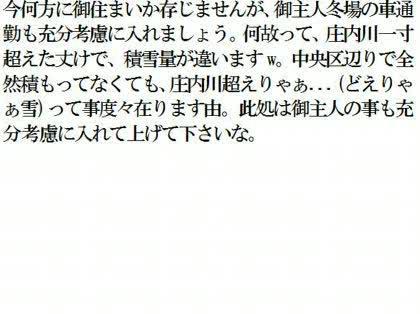 今何方に御住まいか存じませんが、御主人冬場の車通
勤も充分考慮に入れましょう。何故って、庄内川一寸
超えた丈けで、積雪量が違いますw。中央区辺りで全
然積もってなくても、庄内川超えりゃぁ...（どえりゃ
ぁ雪）って事度々在ります由。此処は御主人の事も充
分考慮に入れて上げて下さいな。